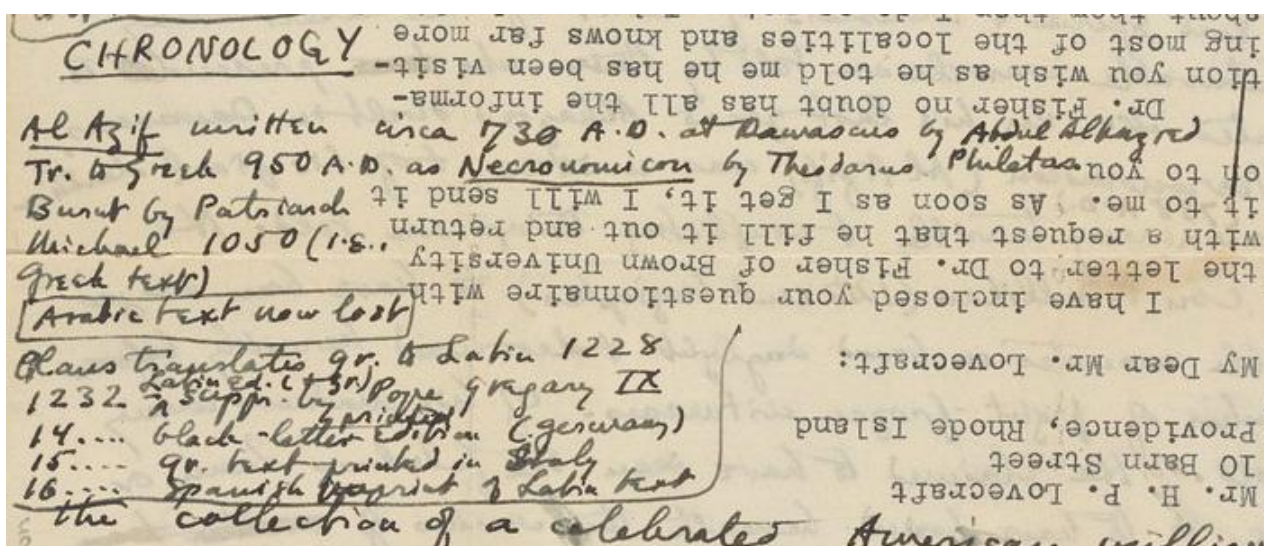 CHRONOLOGY
Al Azif written circa 730 A.D. at Damascus by Abdul Alhazred
Tr. to Greek 950 A.D. as Necronomicon by Theodorus Philetas
Burnt by Patriarch
Michael 1050 (i.e.,
Greek text)
Arabic text now lost
Olaus translates Gr. to Latin 1228
1232 Latin ed. (+ Gr.) suppr. by Pope Gregory IX
14.... black-letter printed edition (Germany)
15.... Gr. text printed in Italy
16.... Spanish reprint of Latin text
the collection of a celebrated American
Mr. H. P. Lovecraft
10 Barn Street
Providence, Rhode Island
My Dear Mr. Lovecraft:
I have inclosed your questionnaire with
the letter to Dr. Fisher of Brown University
with a request that he fill it out and return
it to me. As soon as I get it, I will send it
on to you
Dr. Fisher no doubt has all the informa-
tion you wish as he told me he has been visit-
ing most of the localities and knows far more
about them than